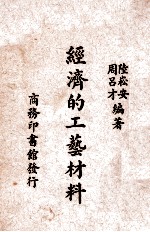 陸崧安
周呂才
編著
經濟的工藝材料
商務印書館發行